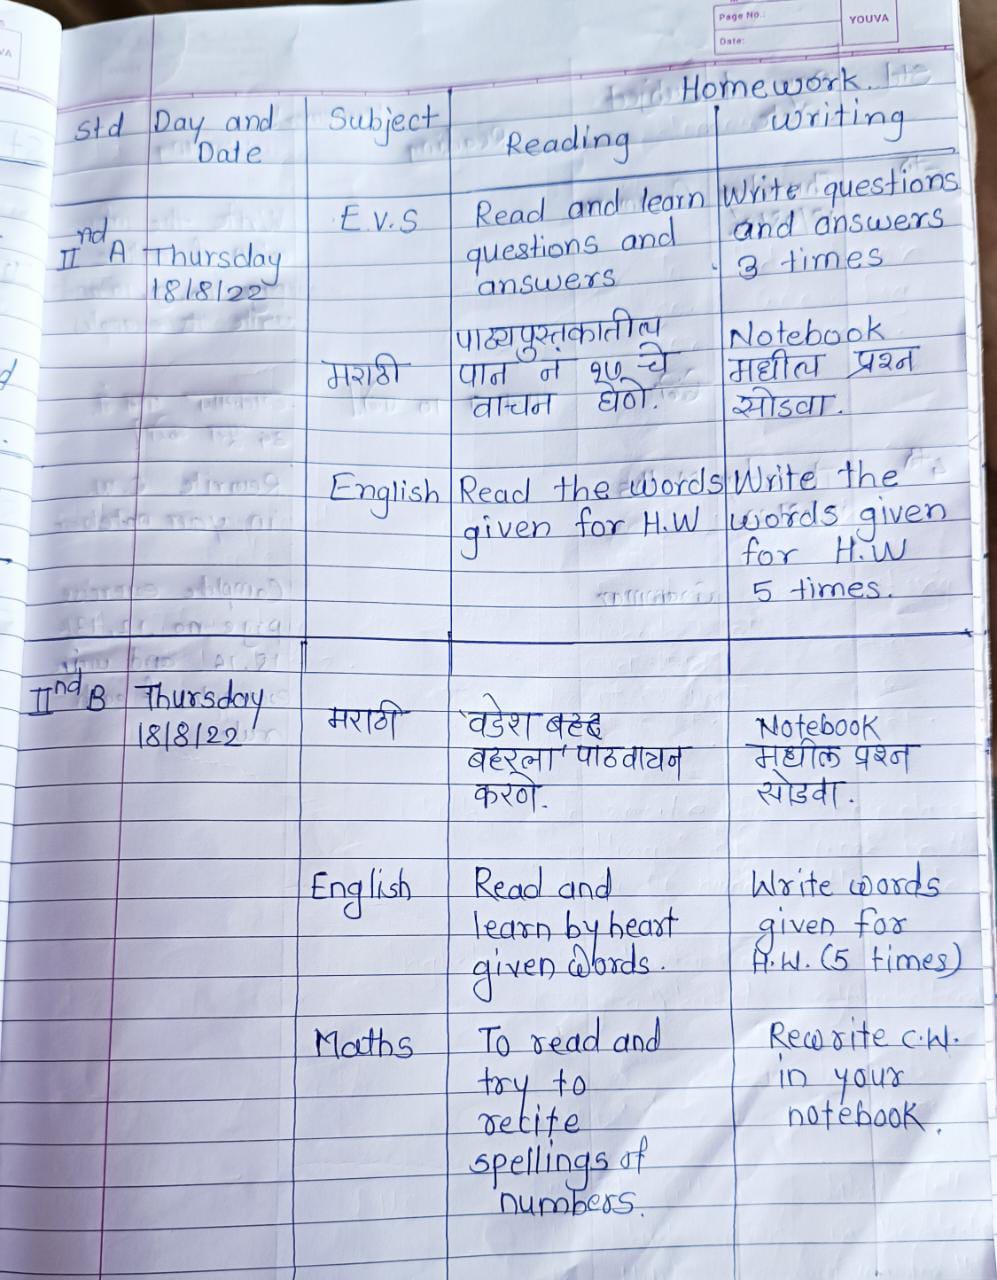 Page No.:
Date:
YOUVA
Homework
Std Day and Date Subject Reading Writing
IInd A Thursday 18/8/22
E.V.S
Read and learn
questions and
answers
Write questions
and answers
3 times
मराठी
पाठ्यपुस्तकातील
पान नं १७ चे
वाचन घेणे.
Notebook
मधील प्रश्न
सोडवा.
English
Read the words
given for H.W
Write the
words given
for H.W
5 times.
IInd B Thursday
18/8/22
मराठी
पाठवाचन
करणे.
Notebook
मधील प्रश्न
सोडवा.
English
Read and
learn by heart
given words.
Write words
given for
H.W. (5 times)
Maths
To read and
try to
retite
spellings of
numbers.
Rewrite C.W.
in your
notebook.